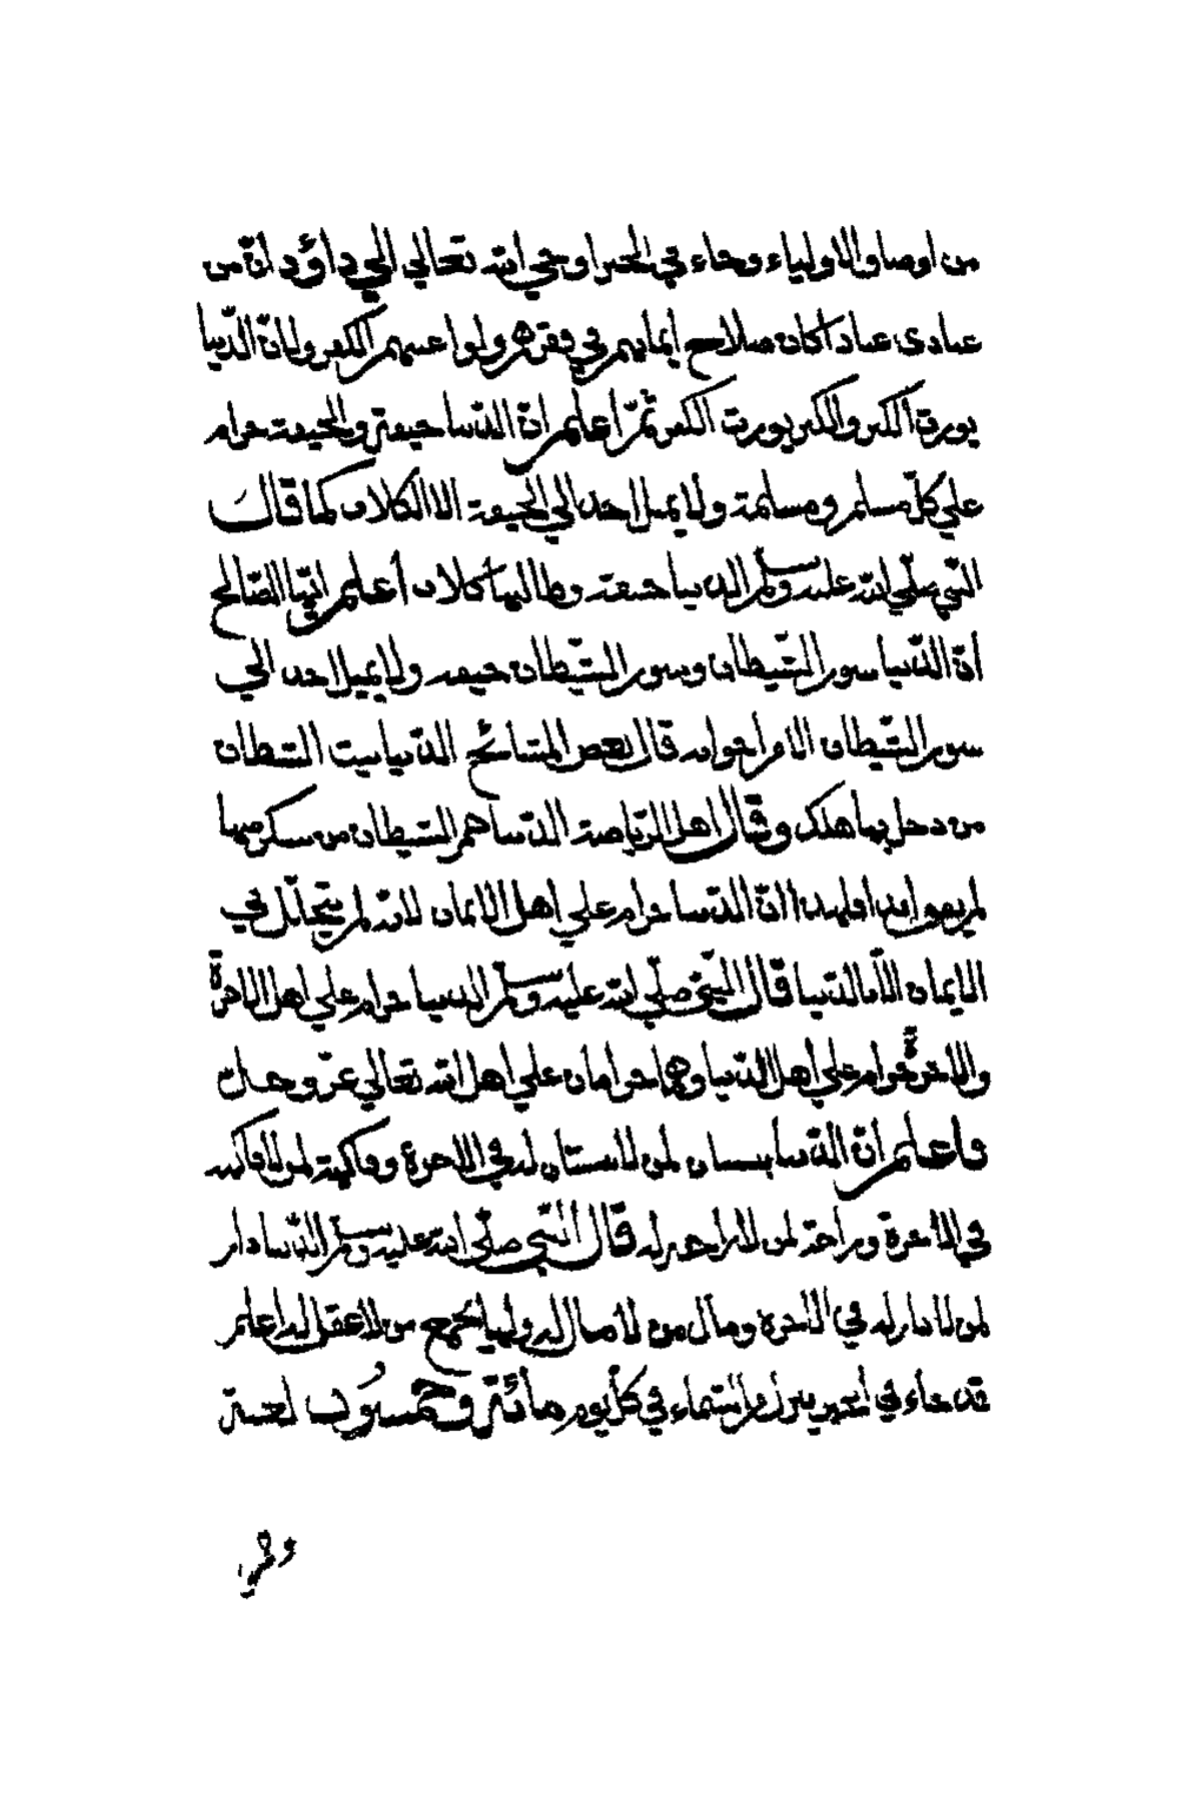 من اوصاف الاولياء وجاء في الخبر اوحي الله تعالي الي داؤد ان من
عبادى عبادا كان صلاح ايمانهم في فقرهم ولو اغنيهم لكفروا لان الدّنيا
يورث الكبر والكبر يورث الكفر ثمّ اعلم ان الدّنيا جيفة والجيفة حرام
علي كلّ مسلم ومسلمة ولا يميل احد الي الجيفة الا الكلاب كما قال
النّبي صلّي الله عليه وسلّم الدنيا جيفة وطالبها كلاب أعلم ايّها الصّالح
أنّ الدّنيا سور الشّيطان وسور الشّيطان جيفة ولا يميل احد الي
سور الشّيطان الا من اخوانه قال بعض المشائخ الدّنيا بيت الشيطان
من دخل بها هلك وقال اهل الرّياضة الدّنيا خمر الشّيطان من سكر منها
لم يفق ابدا انّ الدّنيا حرام علي اهل الايمان لانه لم في
الايمان الدّنيا قال النّبي صلّي الله عليه وسلّم الدنيا حرام علي اهل الاخرة
والاخرة حرام علي أهل الدّنيا وهما حرامان علي اهل الله تعالي عزّ وجلّ
فاعلم انّ الدّنيا بستان لمن لا بستان له في الاخرة وفاكهة لمن لا فاكهة
في الاخرة وراحة لمن لا راحة له قال النّبي صلّي الله عليه وسلّم الدّنيا دار
لمن لا دار له في الاخرة ومال من لا مال له ولها يجمع من لا عقل له اعلم
قد جاء في الخبر ينزل من السّماء في كلّ يوم مائة وخمسون لعنة